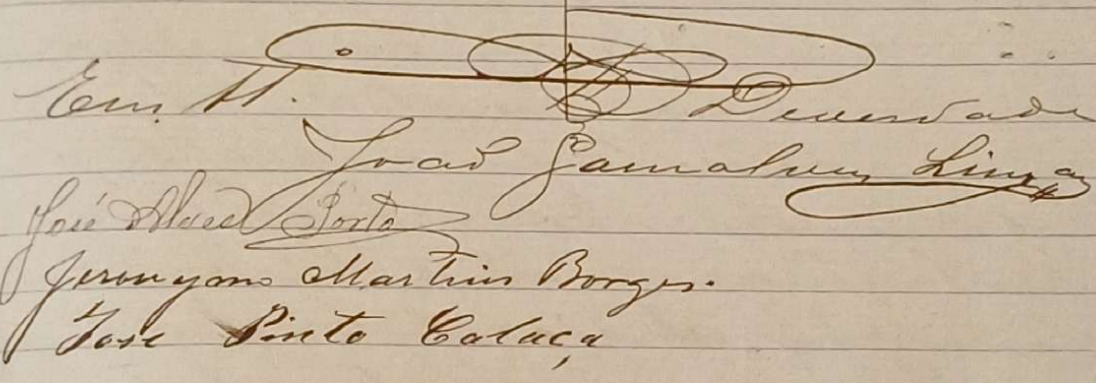 Em tt. da Verdade
João Gonçalves Lima
José Alves Porto
Jeronymo Martins Borges.
José Pinto Calaça